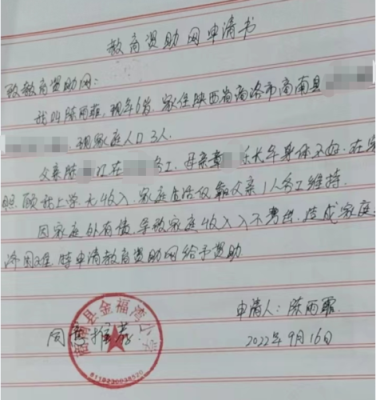 教育资助网申请书
致教育资助网:
我叫陈雨霏,现年6岁,家住陕西省商洛市商南县
,现家庭人口3人。
父亲陈 以在 务工,母亲 长年身体不好,在家
照顾我上学,无收入,家庭生活仅靠父亲1人务工维持。
因家庭外有债,导致家庭收入入不敷出,造成家庭
经济困难,特申请教育资助网给予资助
申请人:陈雨霏
同意推荐
2022年9月16日
商南县金福湾小学